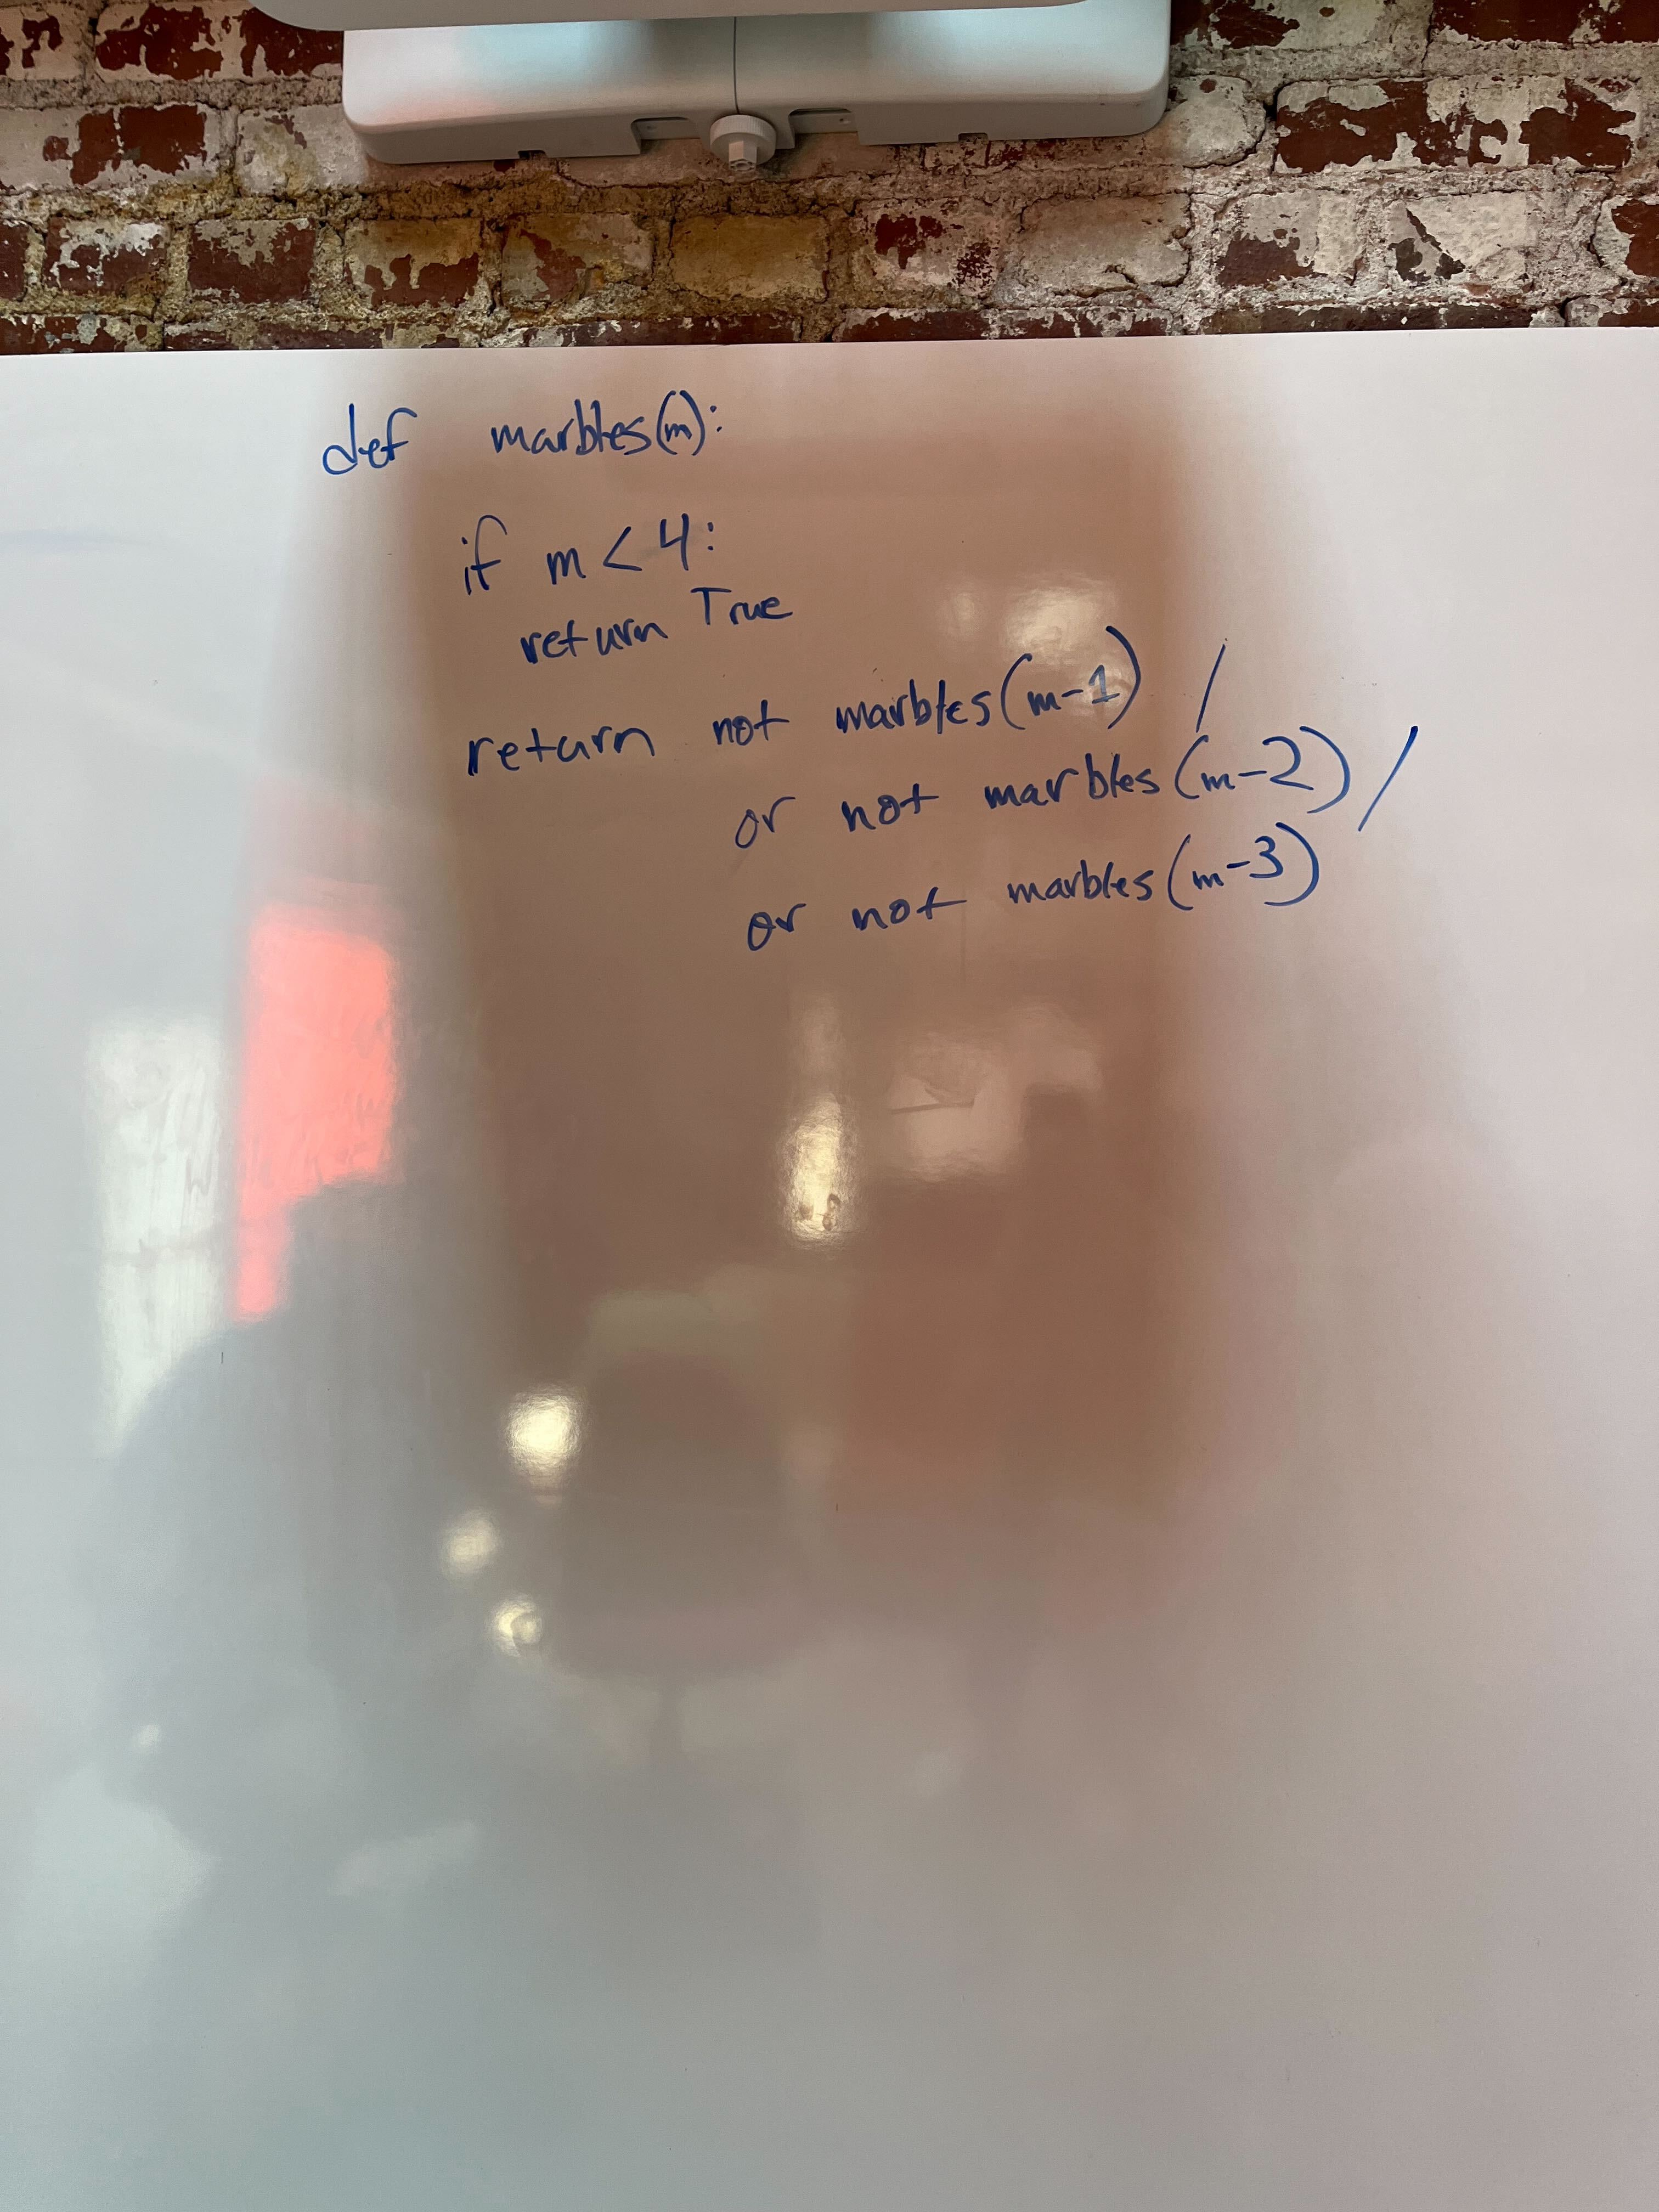 def marbles(m):
if m < 4:
return True
return not marbles(m-1) /
or not marbles(m-2) /
or not marbles(m-3)